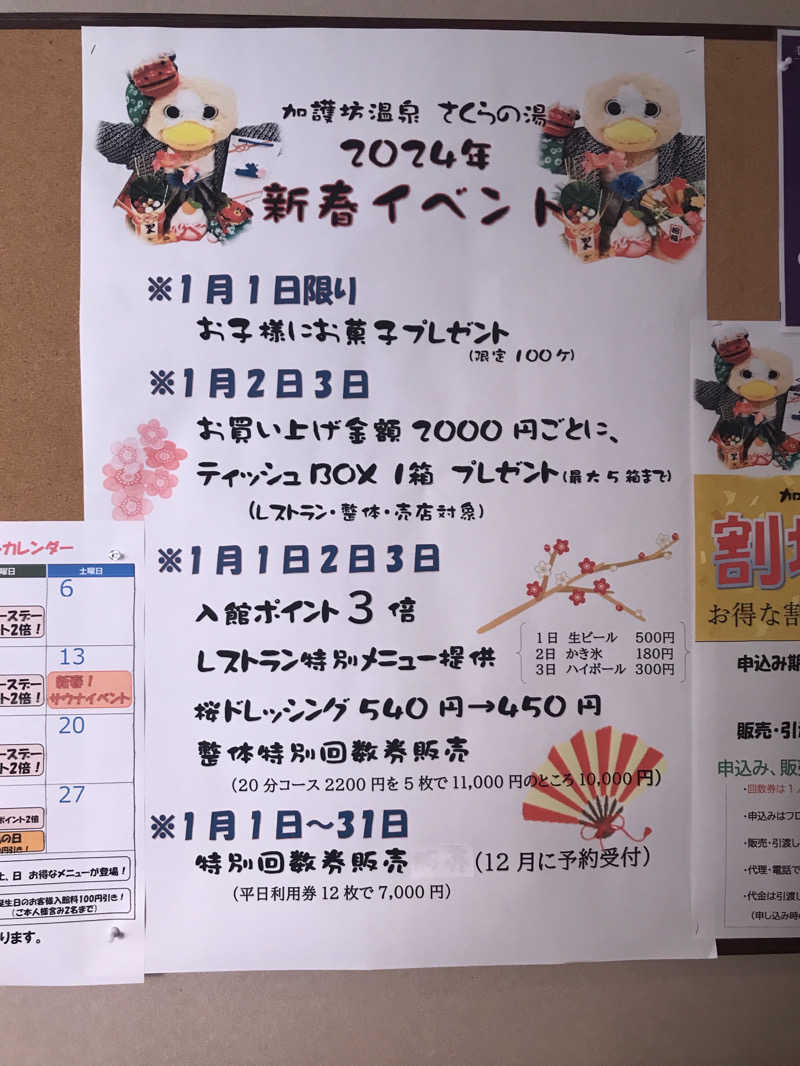 加護坊温泉 さくらの湯
2024年
新春イベント
※1月1日限り
お子様にお菓子プレゼント
(限定 100ケ)
※1月2日3日
お買い上げ金額 2000 円ごとに、
ティッシュBOX 1箱 プレゼント(最大5箱まで)
(レストラン・整体・売店対象)
※1月1日2日3日
入館ポイント3倍
レストラン特別メニュー提供
1日 生ビール 500円
2日 かき氷 180円
3日 ハイボール 300円
桜ドレッシング 540 円→450 円
整体特別回数券販売
(20分コース 2200円を5枚で11,000円のところ10,000円)
※1月1日～31日
特別回数券販売 (12月に予約受付)
(平日利用券12枚で7,000円)
カレンダー
曜日 土曜日
6
ースデー
ト2倍！
13
ースデー
ト2倍！
新春！
サウナイベント
20
ースデー
ト2倍！
27
ポイント2倍
の日
円引き！
土、日 お得なメニューが登場！
誕生日のお客様入館料100円引き！
(ご本人様含み2名まで)
ります。
割
お得な割
申込み期
販売・引
申込み、販
・回数券は1
・申込みはフロ
・販売・引渡し
・代理・電話で
・代金は引渡し
(申し込み時